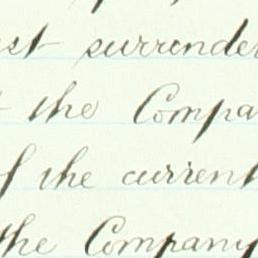 surrende
the Compa
the current
the Company